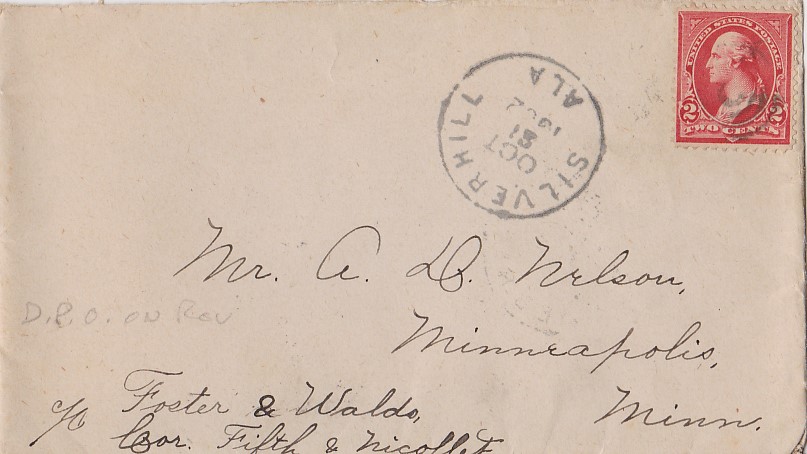 SILVERHILL
ALA
OCT
21
1902
UNITED STATES POSTAGE
2 2
TWO CENTS
Mr. A. D. Nelson,
Minneapolis,
Minn.
D.P.O. ON REV
c/o Foster & Waldo,
Cor. Fifth & Nicollet